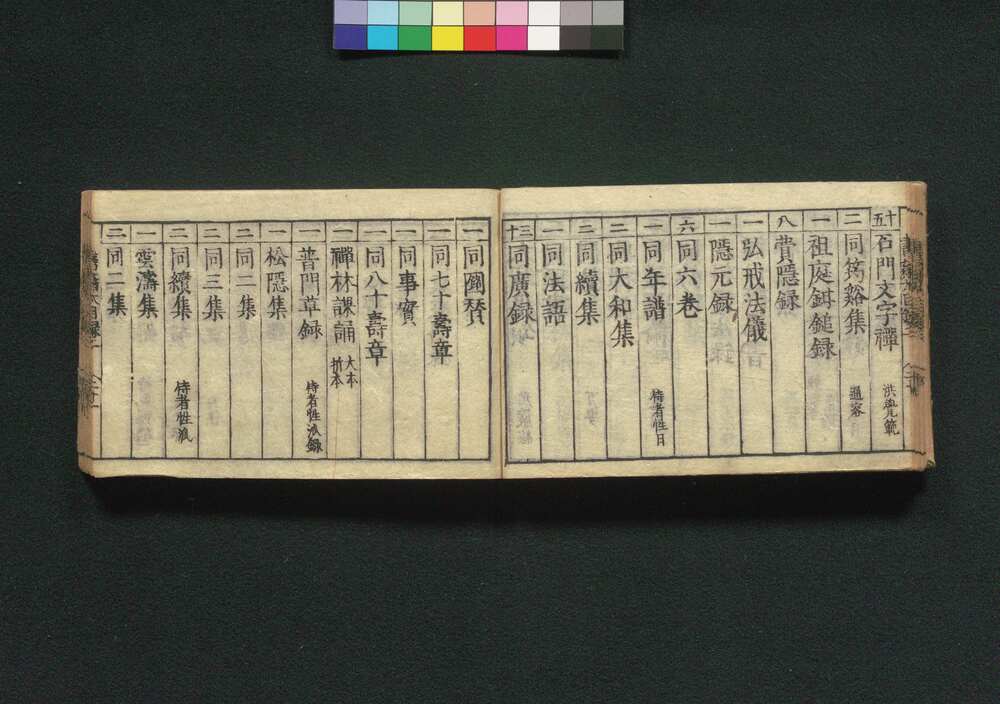 十五 石門文字禪 洪覺範
二 同筠谿集
一 祖庭鉗鎚録 通容
八 費隱録
一 弘戒法儀
一 隱元録
六 同六卷
一 同年譜 侍者性日
二 同大和集
二 同續集
一 同法語
三十 同廣録
一 同圖賛
一 同七十壽章
一 同事實
一 同八十壽章
一 禪林課誦 大本 折本
一 普門草録 侍者性派録
一 松隱集
二 同二集
二 同三集
二 同續集 侍者性派
一 雲濤集
二 同二集